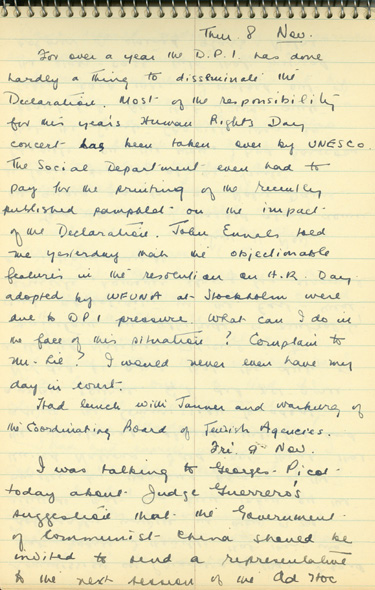 Thur. 8 Nov.
For over a year the D.P.I. has done
hardly a thing to disseminate the
Declaration. Most of the responsibility
for this year's Human Rights Day
concert has been taken over by UNESCO.
The Social Department even had to
pay for the printing of the recently
published pamphlet on the impact
of the Declaration. John Ennals told
me yesterday that the objectionable
features in the resolution on H.R. Day
adopted by WFUNA at Stockholm were
due to DPI pressure. What can I do in
the face of this situation? Complain to
Mr. Lie? I would never even have my
day in court.
Had lunch with and Warburg of
the Coordinating Board of Jewish Agencies.
Fri. 9 Nov.
I was talking to Georges-Picot
today about Judge Guerrero's
suggestion that the Government
of Communist China should be
invited to send a representative
to the next session of the Ad Hoc